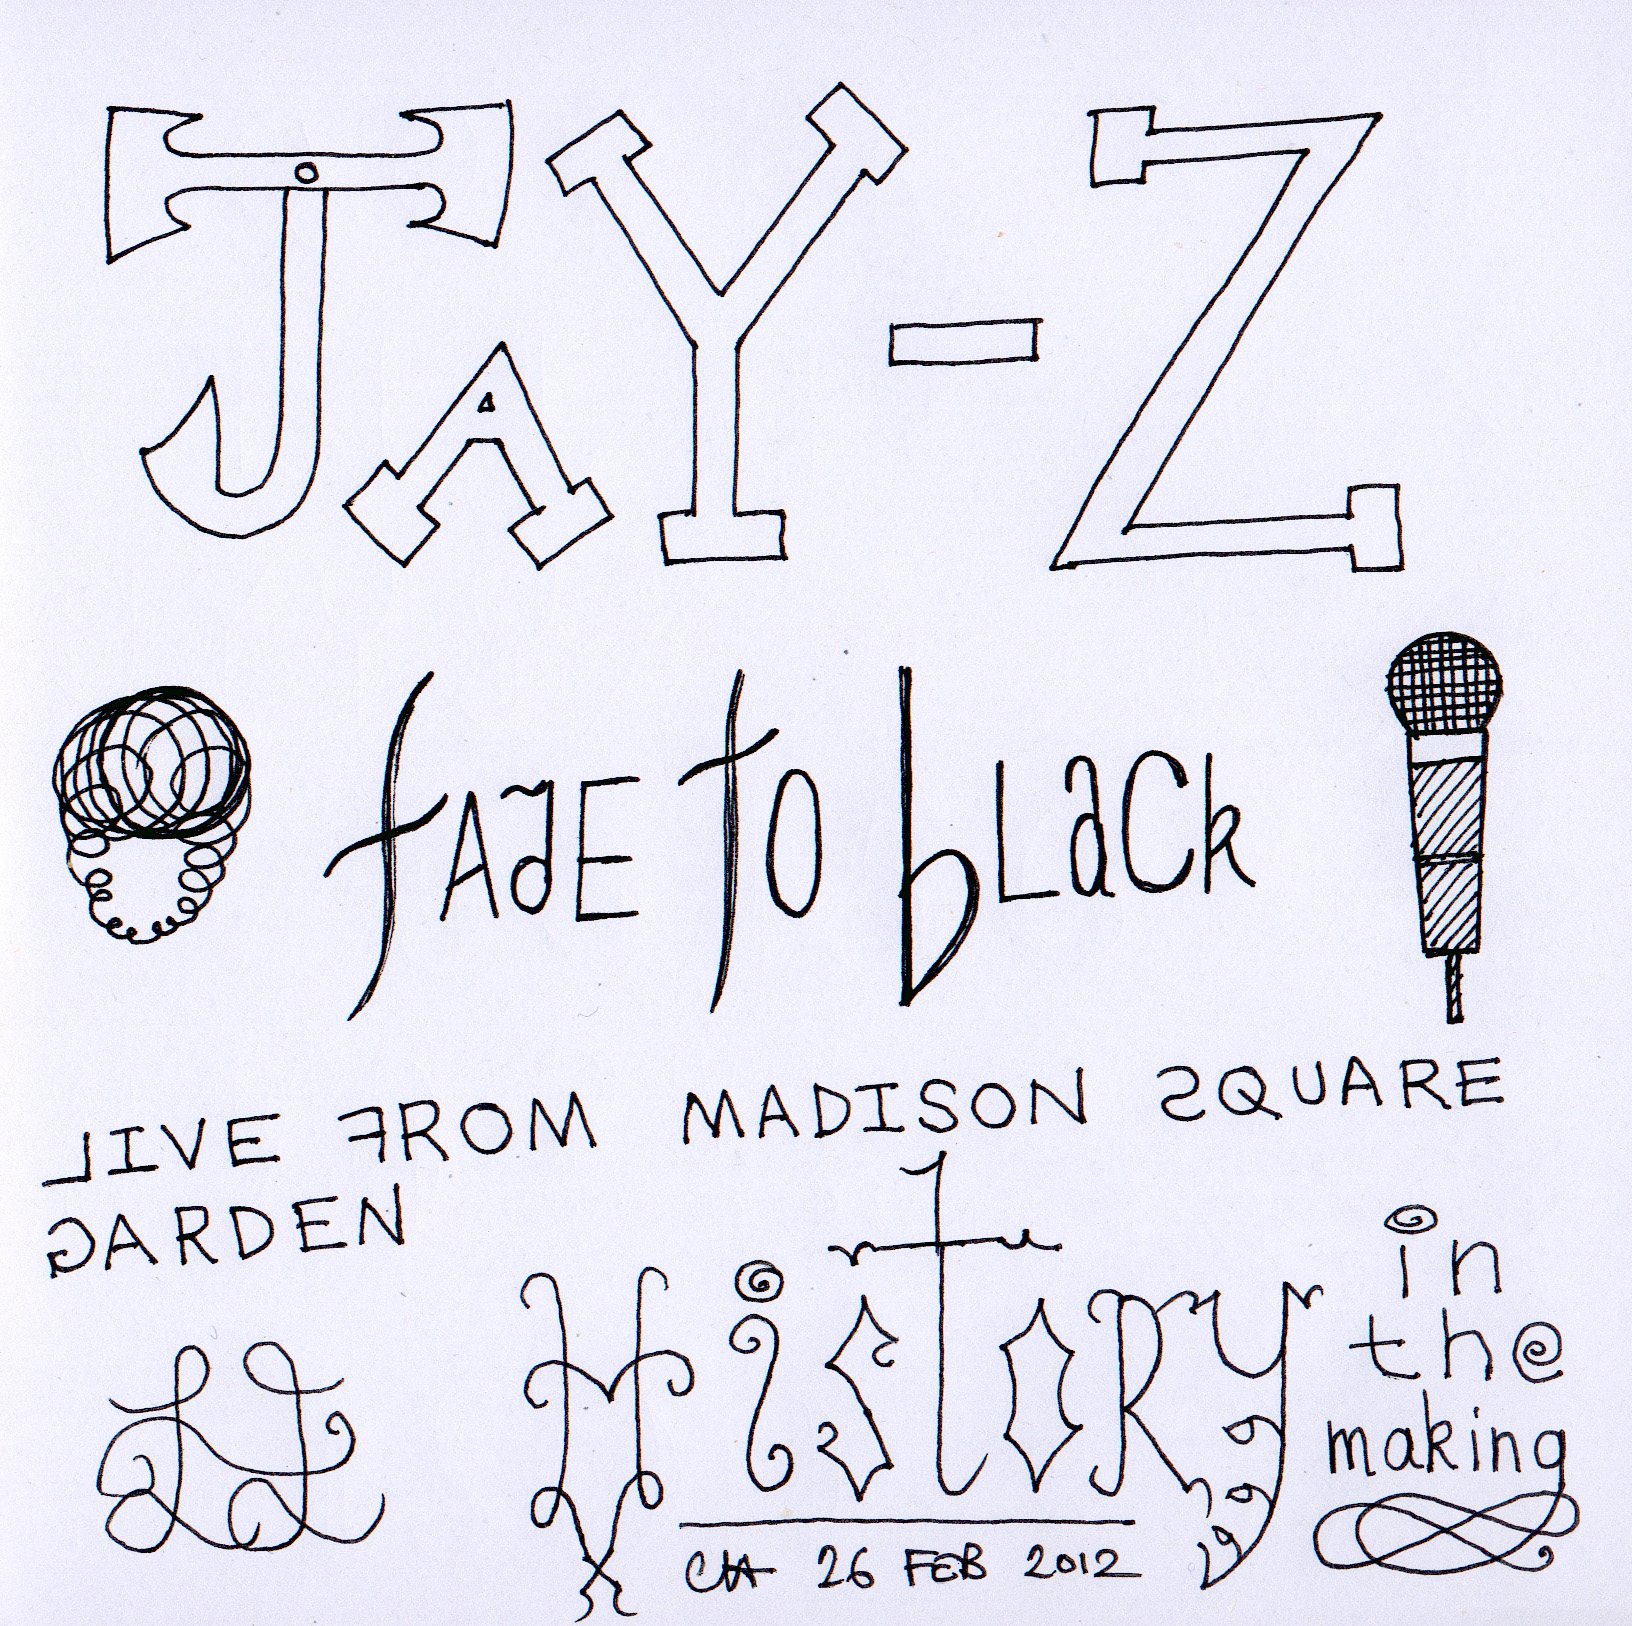 JAY-Z
fAdE To bLaCk
LIVE FROM MADISON SQUARE
GARDEN
HistoRy in
the
making
26 FEB 2012